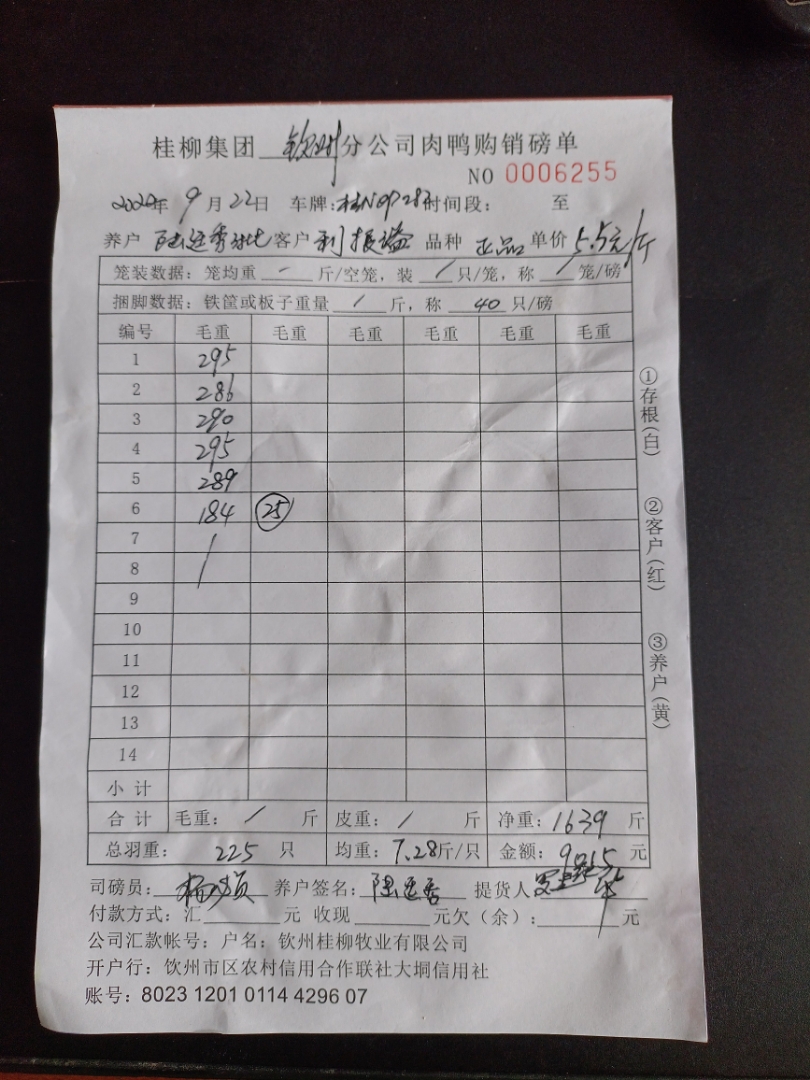 桂柳集团 钦州 分公司肉鸭购销磅单
NO 0006255
年 9 月 22 日 车牌: 时间段: 至
养户 客户 品种 正品 单价 5.5元/斤
笼装数据: 笼均重 - 斤/空笼, 装 / 只/笼, 称 / 笼/磅
捆脚数据: 铁筐或板子重量 / 斤, 称 40 只/磅
编号 毛重 毛重 毛重 毛重 毛重 毛重
1 295
2 286
3 290
4 295
5 289
6 184 25
7
8
9
10
11
12
13
14
小 计
合 计 毛重: / 斤 皮重: / 斤 净重: 1639 斤
总羽重: 225 只 均重: 7.28斤/只 金额: 9015 元
司磅员: 养户签名: 提货人
付款方式: 汇 元 收现 元欠(余): 元
公司汇款帐号: 户名: 钦州桂柳牧业有限公司
开户行: 钦州市区农村信用合作联社大垌信用社
账号: 8023 1201 0114 4296 07
①存根(白)
②客户(红)
③养户(黄)